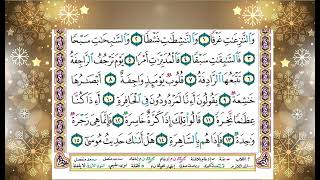 وَٱلنَّٰزِعَٰتِ غَرْقًا ١ وَٱلنَّٰشِطَٰتِ نَشْطًا ٢ وَٱلسَّٰبِحَٰتِ سَبْحًا
٣ فَٱلسَّٰبِقَٰتِ سَبْقًا ٤ فَٱلْمُدَبِّرَٰتِ أَمْرًا ٥ يَوْمَ تَرْجُفُ ٱلرَّاجِفَةُ
٦ تَتْبَعُهَا ٱلرَّادِفَةُ ٧ قُلُوبٌ يَوْمَئِذٍ وَاجِفَةٌ ٨ أَبْصَٰرُهَا
خَٰشِعَةٌ ٩ يَقُولُونَ أَءِنَّا لَمَرْدُودُونَ فِي ٱلْحَافِرَةِ ١٠ أَءِذَا كُنَّا
عِظَٰمًا نَّخِرَةً ١١ قَالُوا۟ تِلْكَ إِذًا كَرَّةٌ خَاسِرَةٌ ١٢ فَإِنَّمَا هِيَ زَجْرَةٌ
وَٰحِدَةٌ ١٣ فَإِذَا هُم بِٱلسَّاهِرَةِ ١٤ هَلْ أَتَىٰكَ حَدِيثُ مُوسَىٰٓ ١٥